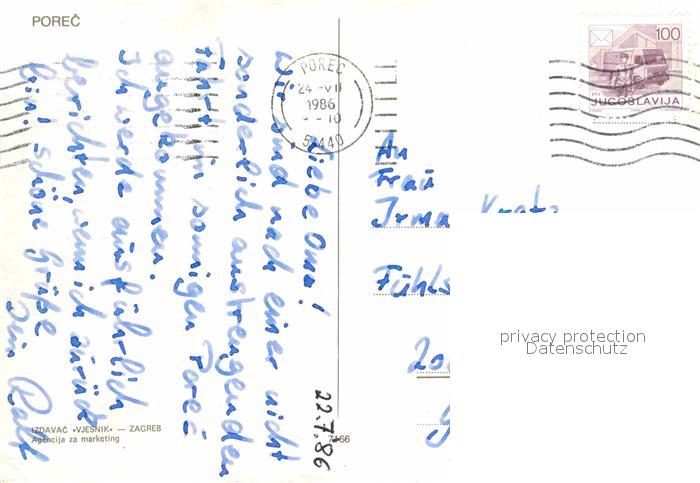 POREČ
Liebe Oma!
Wir sind nach einer nicht
sonderlich anstrengenden
Fahrt im sonnigen Poreč
angekommen.
Ich werde ausführlich
berichten, wenn ich zurück
bin! schöne Grüße
Dein Ralf
22.7.86
IZDAVAČ »VJESNIK« — ZAGREB
Agencija za marketing
7166
POREČ
24 -VII
1986
51440
100
PTT
JUGOSLAVIJA
An
Frau
Irma
Fühls
privacy protection
Datenschutz